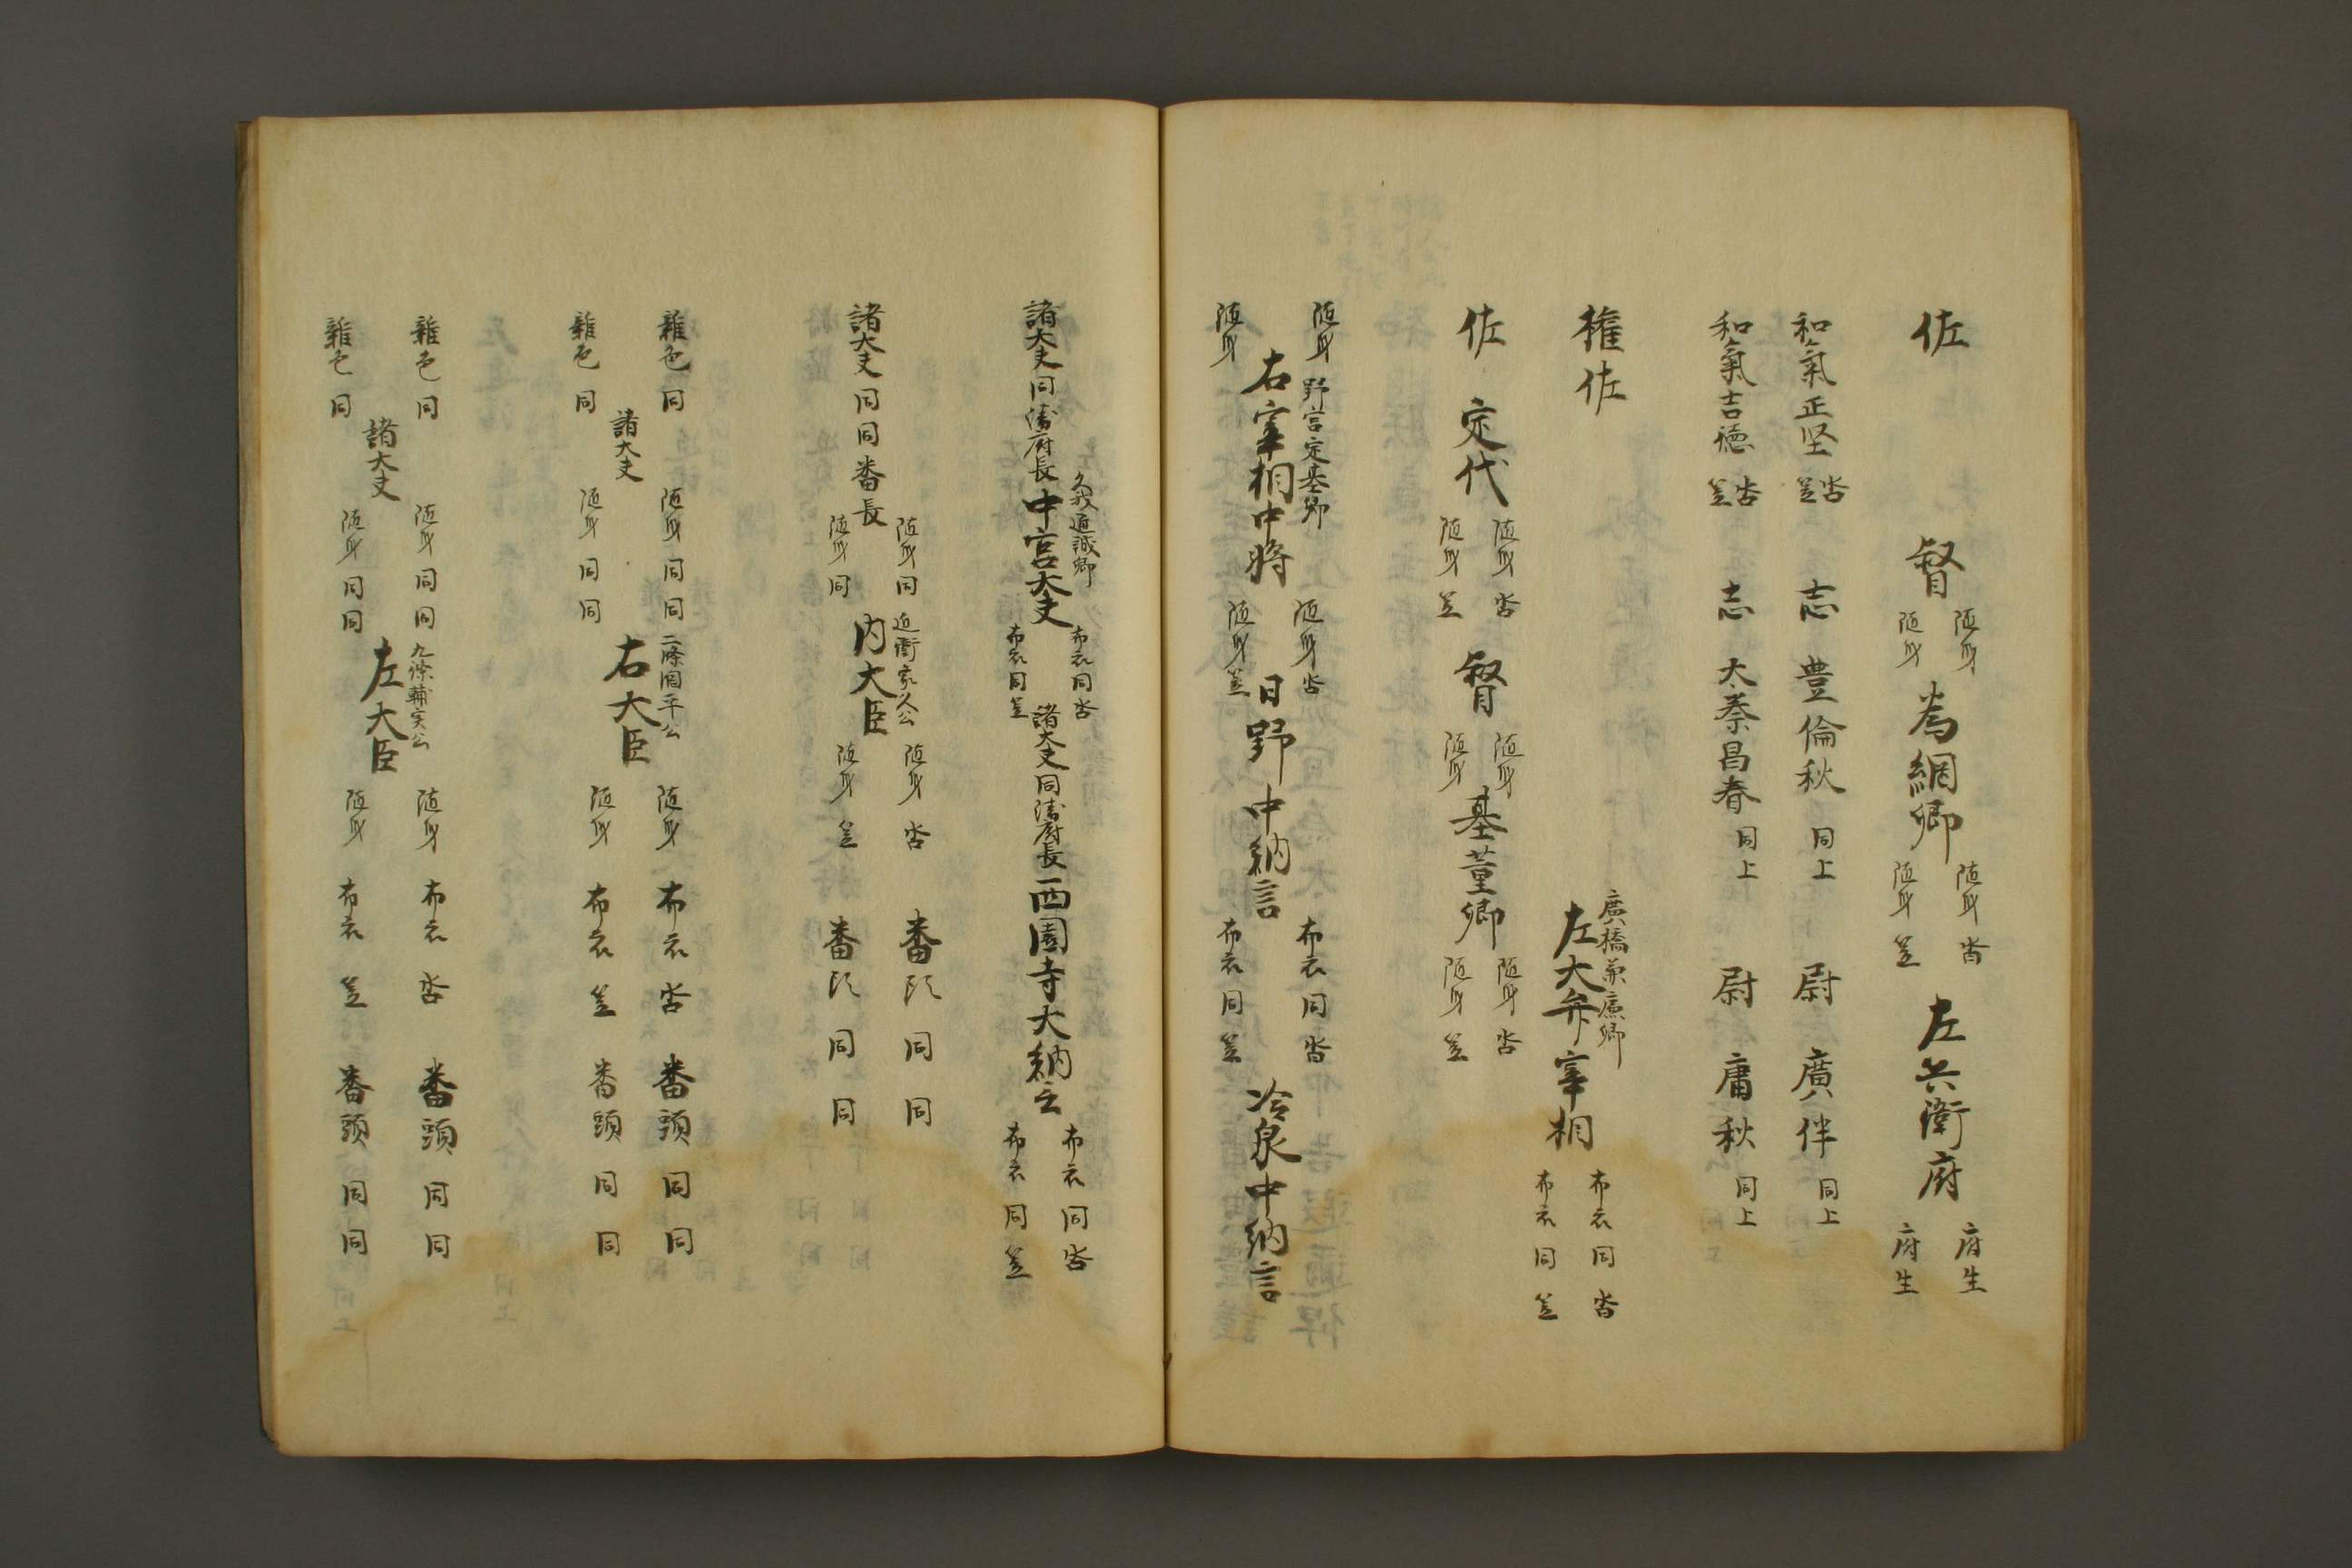 佐
督
随身
随身
為綱卿
随身 沓
随身 笠
左兵衛府
府生
府生
和氣正堅 沓 笠 志 豊倫秋 同上 尉 廣伴 同上
和氣吉徳 沓 笠 志 太秦昌春 同上 尉 庸秋 同上
権佐
廣橋兼廉卿
左大弁宰相
布衣 同 沓
布衣 同 笠
佐 定代
随身 沓
随身 笠
督
随身
随身
基董卿
随身 沓
随身 笠
随身
随身
野宮定基卿
右宰相中将
随身 沓
随身 笠
日野中納言
布衣 同 沓
布衣 同 笠
冷泉中納言
諸大夫 同 衛府長
久我通誠卿
中宮大夫
布衣 同 沓
布衣 同 笠
諸大夫 同 衛府長
西園寺大納言
布衣 同 沓
布衣 同 笠
諸大夫 同 同 番長
随身 同
随身 同
近衛家久公
内大臣
随身 沓
随身 笠
番頭 同 同
番頭 同 同
雑色 同
雑色 同
諸大夫
随身 同 同
随身 同 同
二條綱平公
右大臣
随身 布衣 沓 番頭 同 同
随身 布衣 笠 番頭 同 同
雑色 同
雑色 同
諸大夫
随身 同 同
随身 同 同
九條輔実公
左大臣
随身 布衣 沓 番頭 同 同
随身 布衣 笠 番頭 同 同